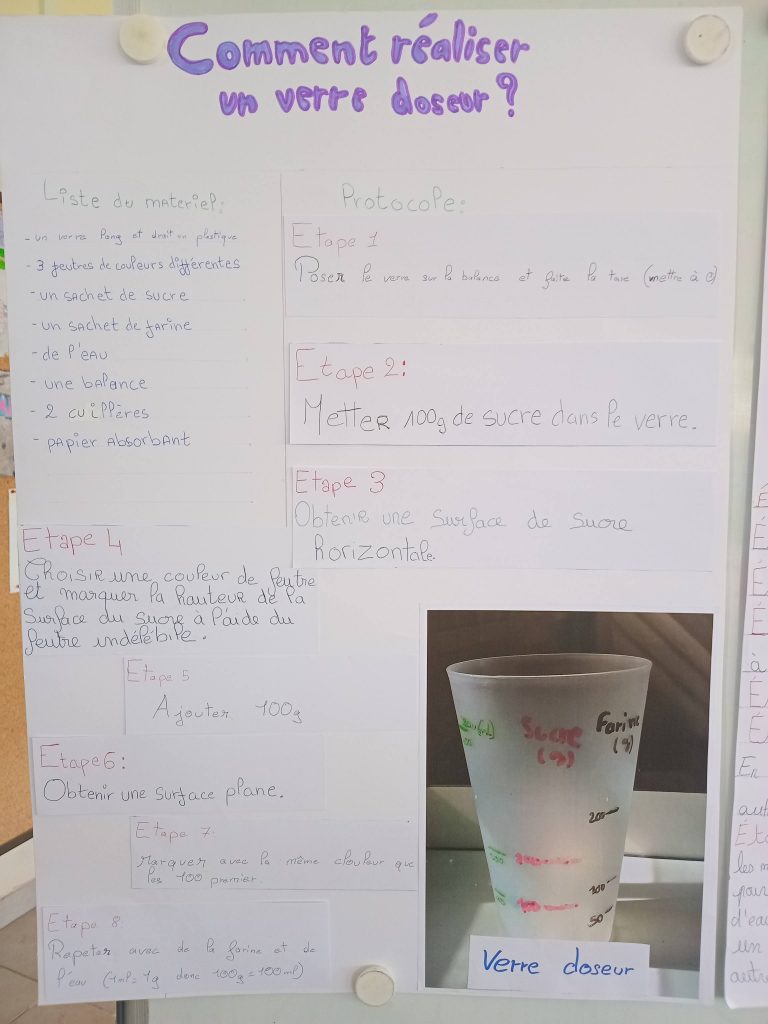 Comment réaliser
un verre doseur ?
Liste du materiel:
- un verre long et droit en plastique
- 3 feutres de couleurs différentes
- un sachet de sucre
- un sachet de farine
- de l'eau
- une balance
- 2 cuillères
- papier absorbant
Protocole:
Etape 1
Poser le verre sur la balance et faite la tare (mettre à 0)
Etape 2:
Metter 100g de sucre dans le verre.
Etape 3
Obtenir une surface de sucre
horizontale.
Etape 4
Choisir une couleur de feutre
et marquer la hauteur de la
surface du sucre à l'aide du
feutre indélébile.
Etape 5
Ajouter 100g
Etape 6:
Obtenir une surface plane.
Etape 7:
Marquer avec la même clouleur que
les 100 premier.
Etape 8:
Repeter avec de la farine et de
l'eau (1ml=1g donc 100g=100ml)
Sucre
(g)
Farine
(g)
200
100
50
Verre doseur
à
En
les m
pour
d'eau
un
autre